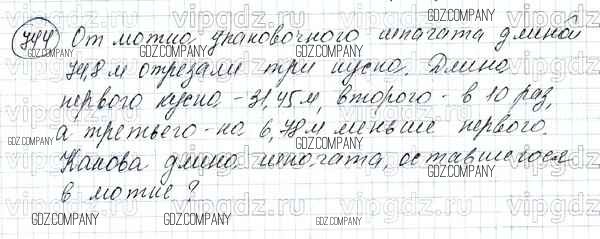 744 От мотка упаковочного шпагата длиной
74,8 м отрезали три куска. Длина
первого куска - 31,45 м, второго - в 10 раз,
а третьего - на 6,78 м меньше первого.
Какова длина шпагата, оставшегося
в мотке?